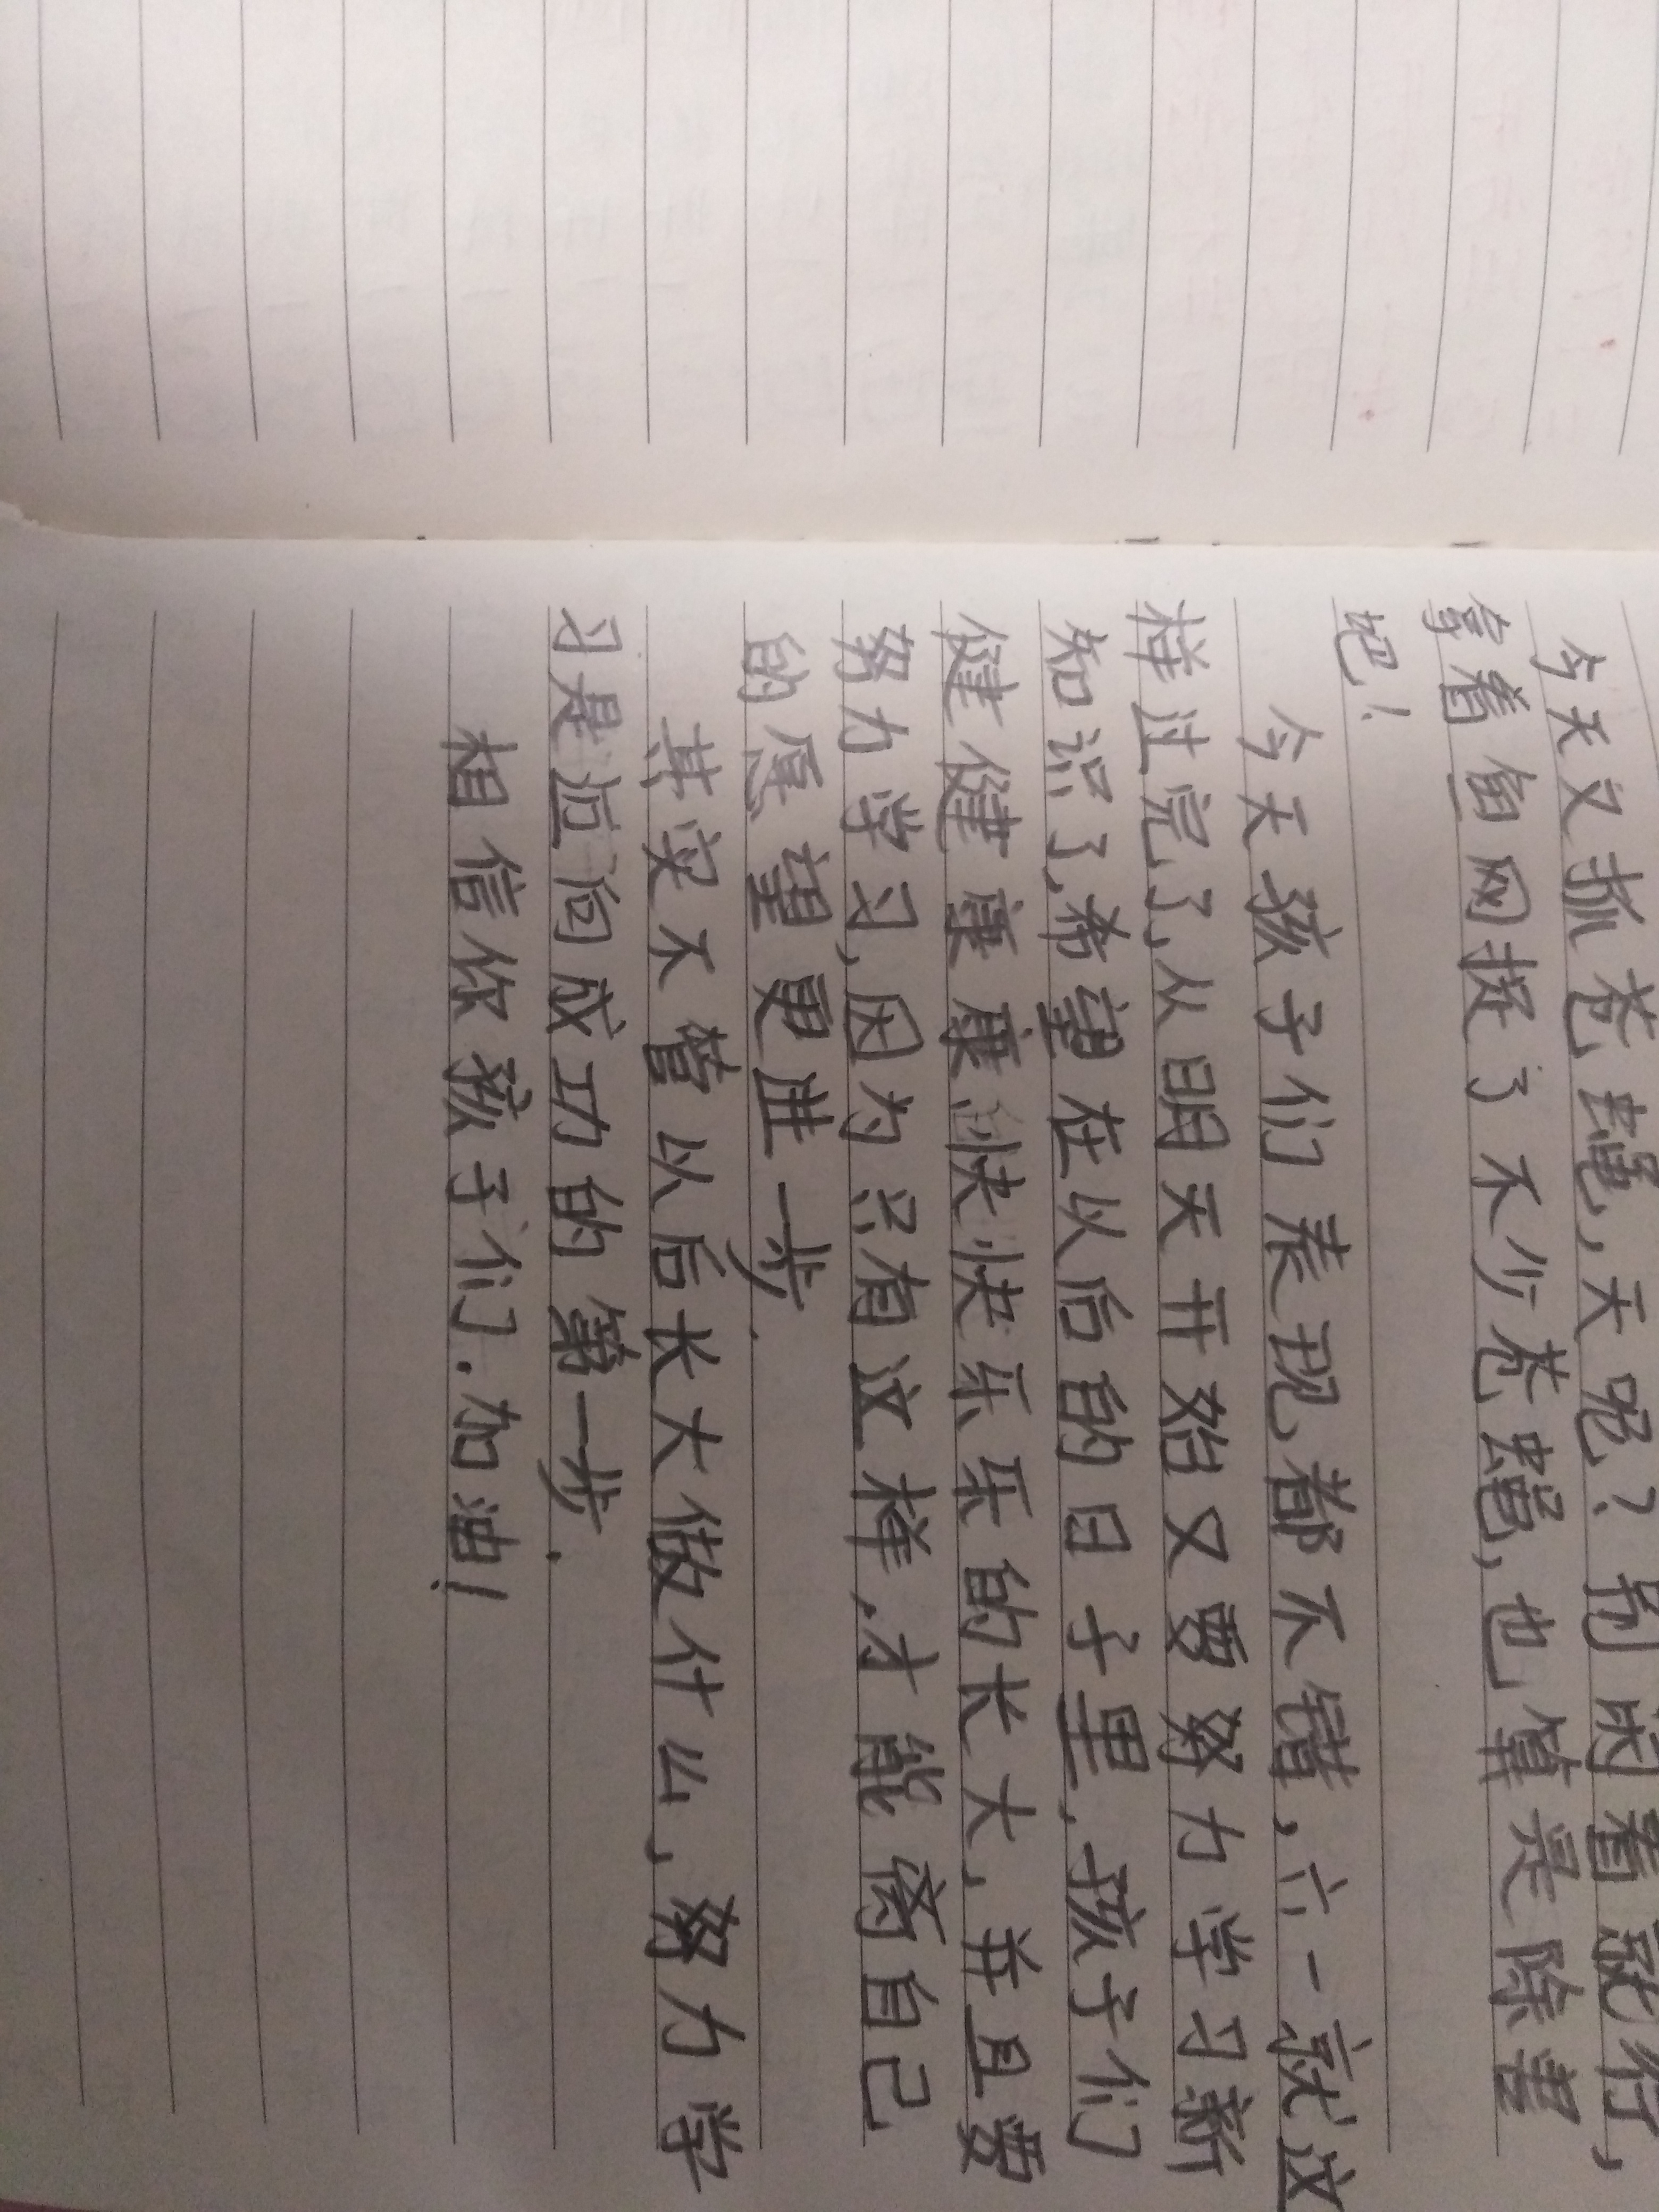 今天又抓苍蝇,天呢?别闲着就行,
拿着鱼网了不少苍蝇,也算是除害
吧!
今天孩子们表现都不错,六一就这
样过完了,从明天开始又要努力学习新
知识了,希望在以后的日子里,孩子们
健健康康快快乐乐的长大,并且要
努力学习,因为只有这样,才能离自己
的愿望更进一步.
其实不管以后长大做什么,努力学
习是迈向成功的第一步.
相信你孩子们.加油!